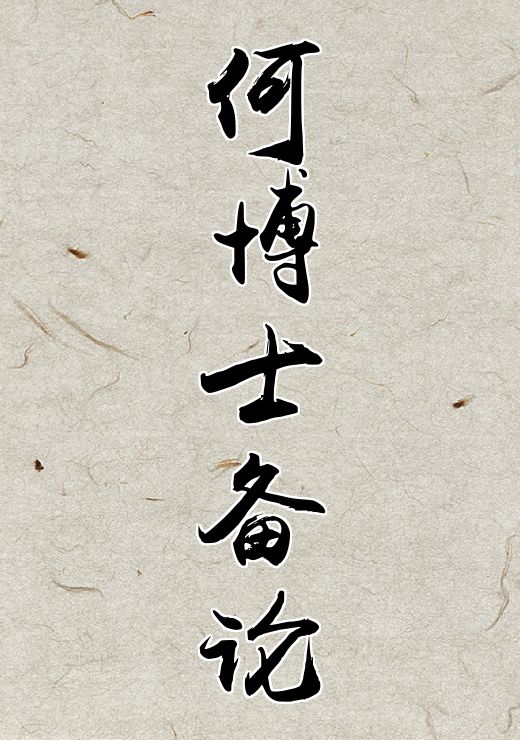 何博士备论